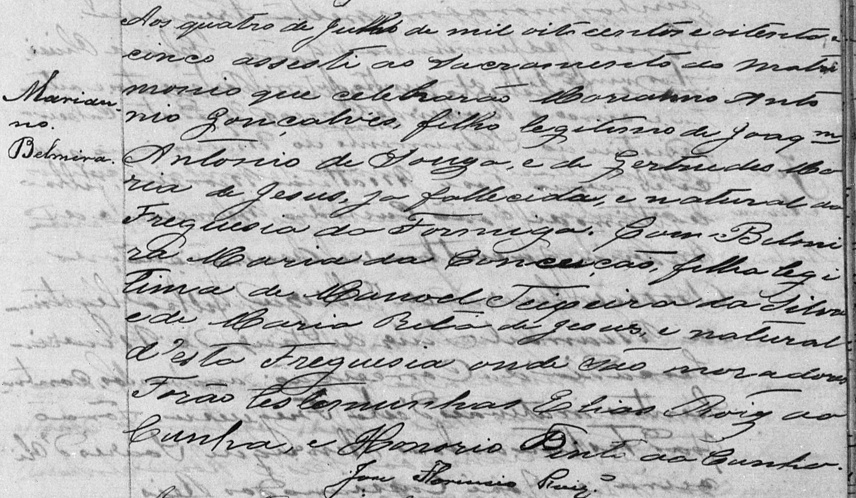 Aos quatro de Julho de mil oitocentos e oitenta, e
cinco assesti ao Sacramento do Matri
monio que celebrarão Marianno Anto
nio Gonçalves, filho legitimo de Joaqm
Antonio de Souza, e de Gertrudes Ma
ria de Jesus, já fallecida, e natural da
Freguesia da Formiga. Com Belmi
ra Maria da Conceição, filha legi
tima de Manoel Teixeira da Silva
e de Maria Rita de Jesus, e natural
d'esta Freguesia onde são moradores
Forão testemunhas Elias Roiz da
Cunha, e Honorio Bento da Cunha.
Florencio Roiz.
Marian-
no.
Belmira.